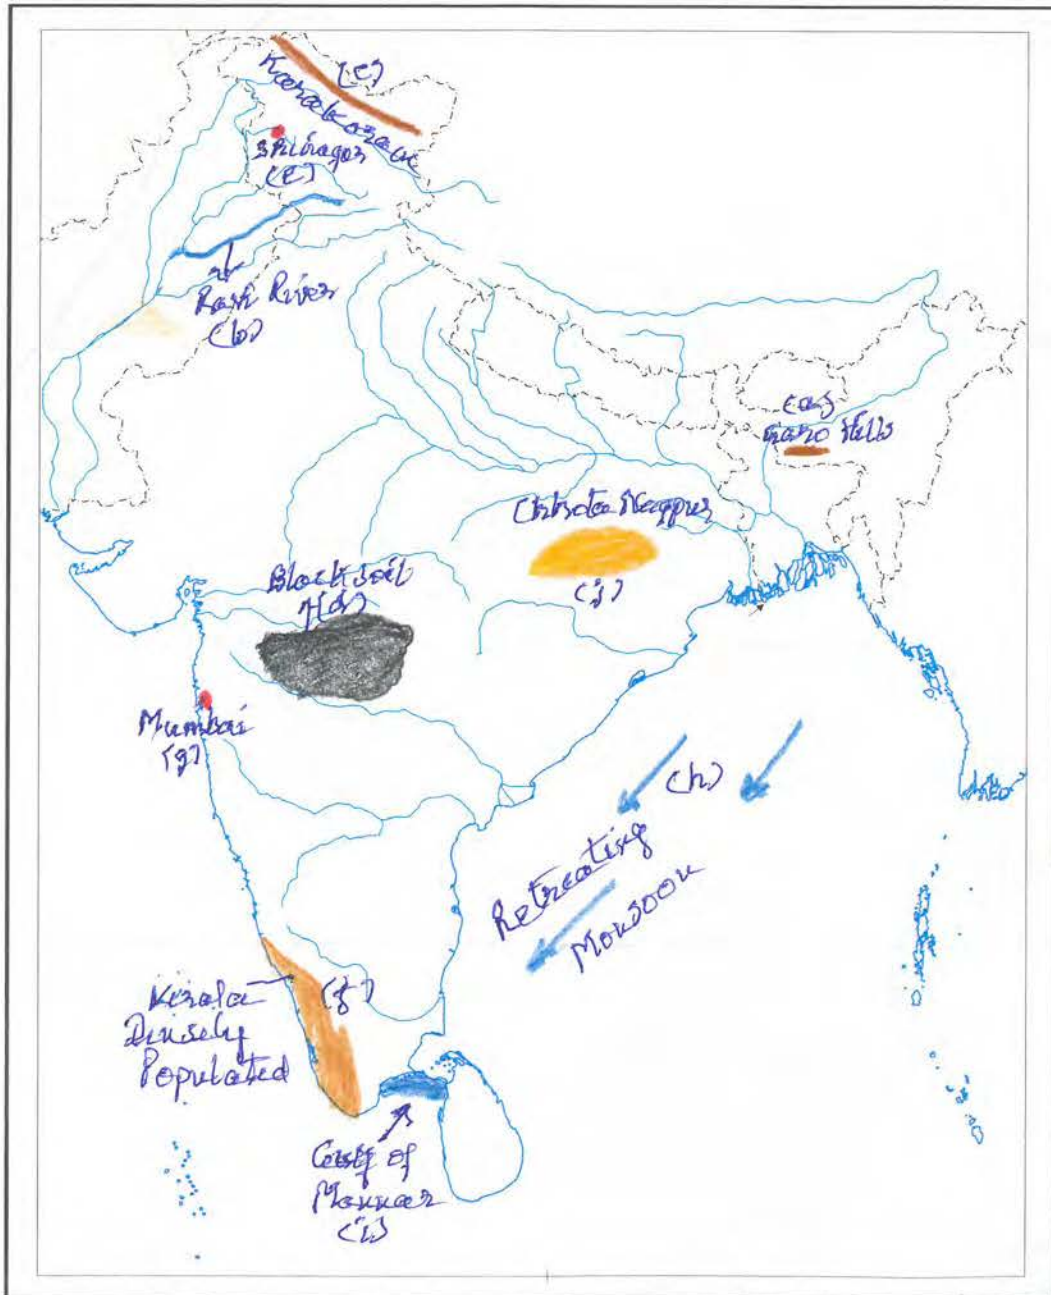 (c)
Karakoram
Srinagar
(e)
Ravi River
(b)
(a)
Garo Hills
Chhota Nagpur
(j)
Black soil
(d)
Mumbai
(g)
(h)
Retreating
Monsoon
Kerala
(f)
Densely
Populated
Gulf of
Mannar
(i)